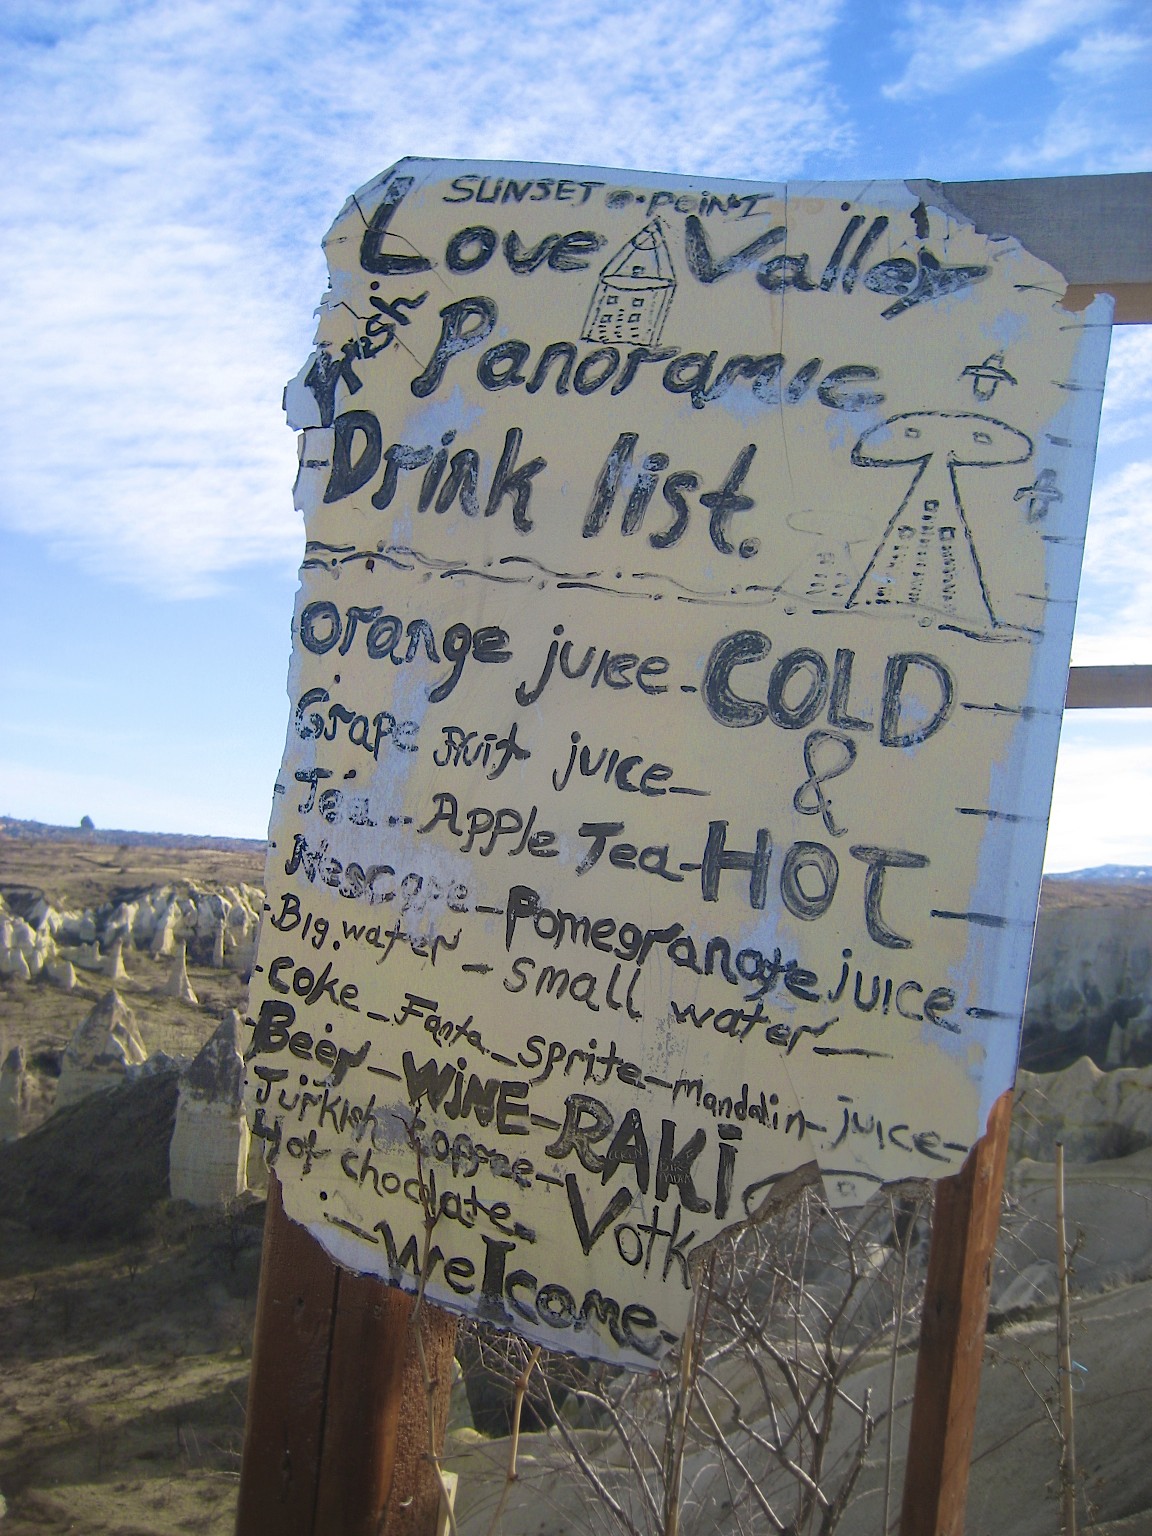 SUNSET POINT
Love Valley
Panoramic
Drink list.
Orange juice - COLD
&
Grape Fruit juice -
Tea - Apple Tea - HOT
Nescafe - Pomegranate juice -
Big. water - small water -
coke - Fanta - Sprite - mandalin - juice -
Beer - WiNE - RAKİ
Turkish Coffee - Votk
Hot choclate -
- Welcome -